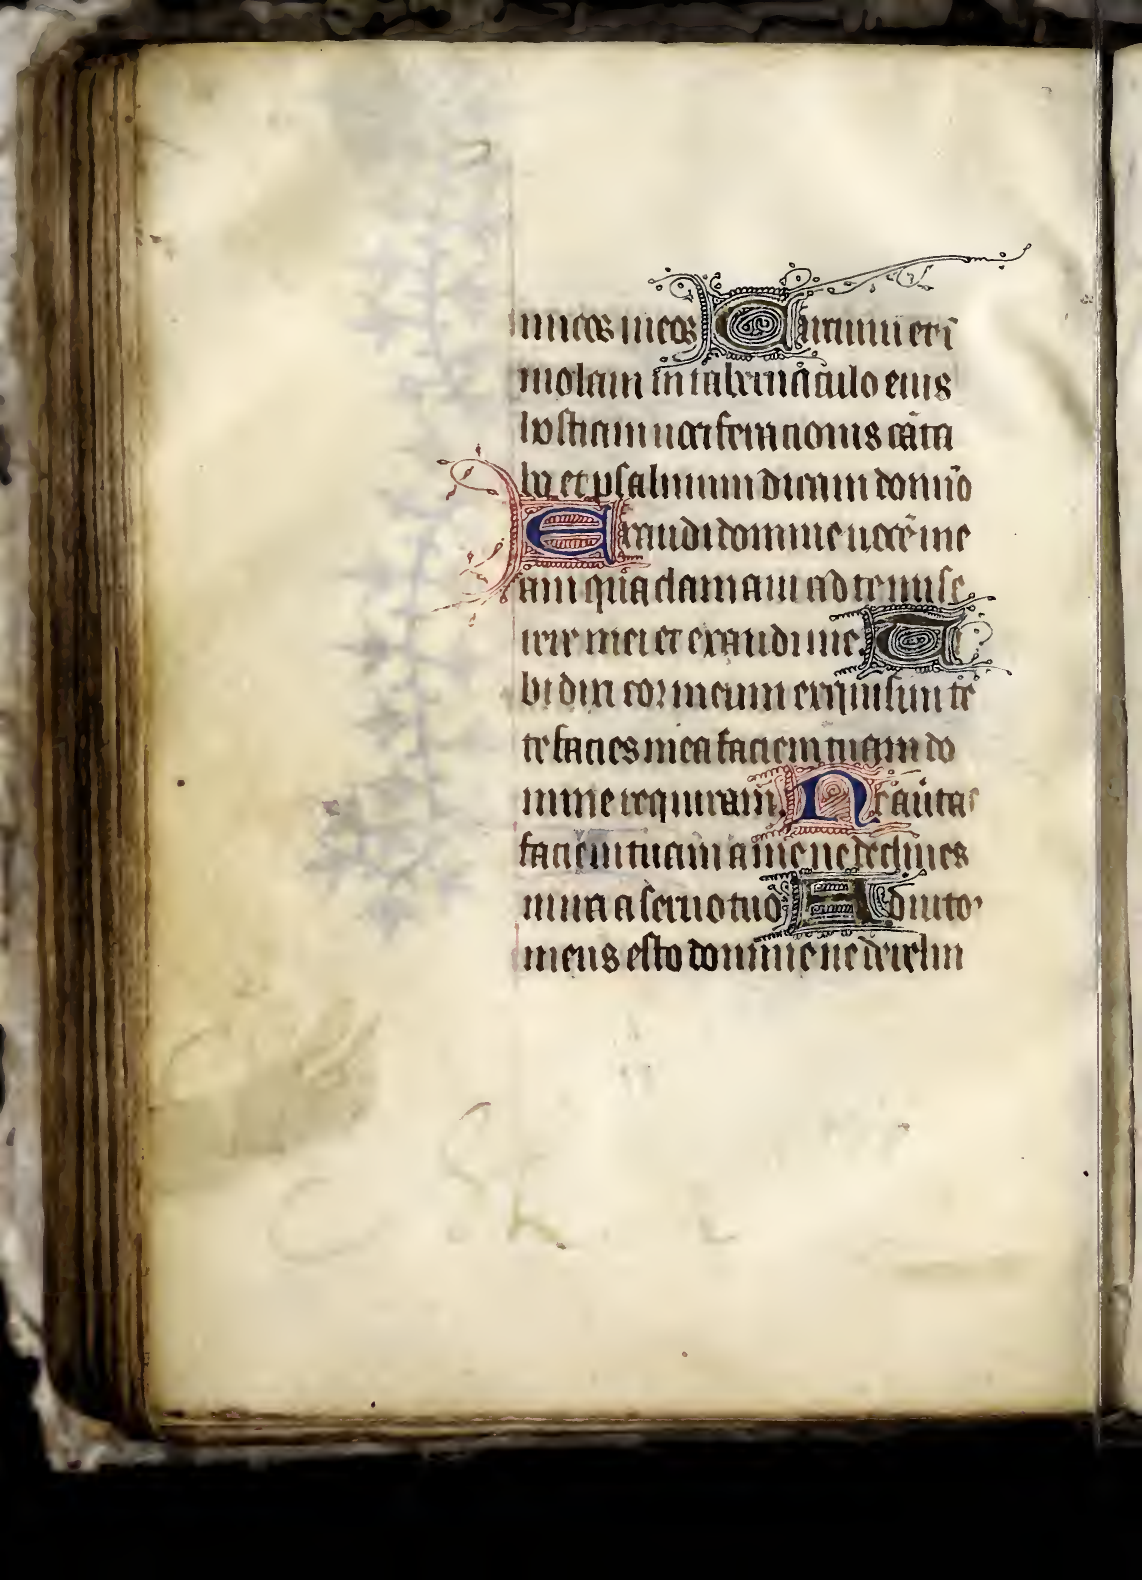 imicos meos Circuiui et i
molaui in tabernaculo eius
hostiam uociferacionis cāta
bo et psalmum dicam domīo
Exaudi domine uocē me
am qua clamaui ad te mise
rere mei et exaudi me. T
ibi dixit cor meum exquisiuit te
te facies mea faciem tuam do
mine requiram. Ne auertas
faciem tuam a me ne declines
in ira a seruo tuo Adiutor
meus esto domine ne derelin